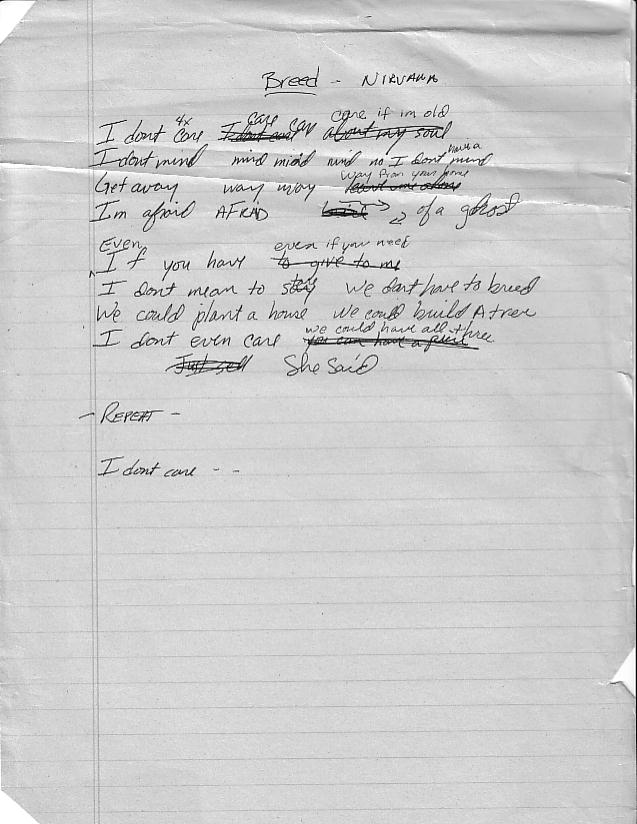 Breed - NIRVANA
4x care care if im old
I dont care I dont care car about my soul
have a
I dont mind mind mind mind no I dont mind
way from your home
Get away way away leave me alone
Im afraid AFRAID of a ghost
Even even if you need
If you have to give to me
I dont mean to stay We dont have to breed
We could plant a house We could build A tree
we could have all three
I dont even care you can have a
Just sell She Said
- REPEAT -
I dont care - -